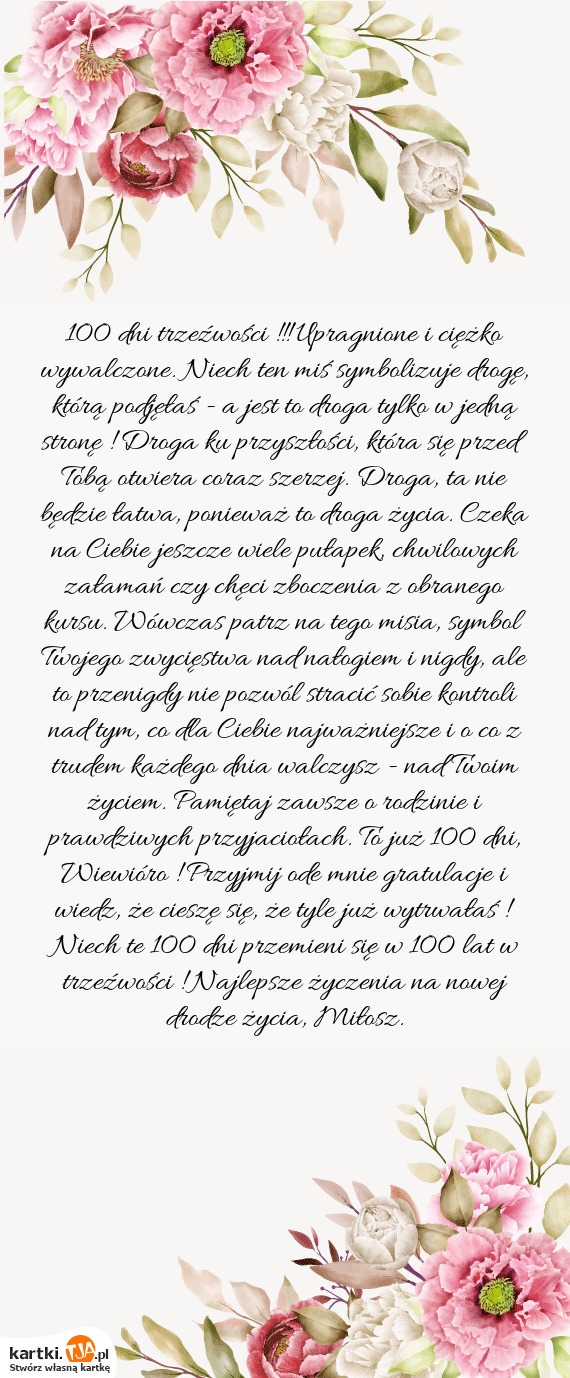 100 dni trzeźwości !!! Upragnione i ciężko
wywalczone. Niech ten miś symbolizuje drogę,
którą podjęłaś - a jest to droga tylko w jedną
stronę ! Droga ku przyszłości, która się przed
Tobą otwiera coraz szerzej. Droga, ta nie
będzie łatwa, ponieważ to droga życia. Czeka
na Ciebie jeszcze wiele pułapek, chwilowych
załamań czy chęci zboczenia z obranego
kursu. Wówczas patrz na tego misia, symbol
Twojego zwycięstwa nad nałogiem i nigdy, ale
to przenigdy nie pozwól stracić sobie kontroli
nad tym, co dla Ciebie najważniejsze i o co z
trudem każdego dnia walczysz - nad Twoim
życiem. Pamiętaj zawsze o rodzinie i
prawdziwych przyjaciołach. To już 100 dni,
Wiewióro ! Przyjmij ode mnie gratulacje i
wiedz, że cieszę się, że tyle już wytrwałaś !
Niech te 100 dni przemieni się w 100 lat w
trzeźwości ! Najlepsze życzenia na nowej
drodze życia, Miłosz.
kartki.TJA.pl
Stwórz własną kartkę